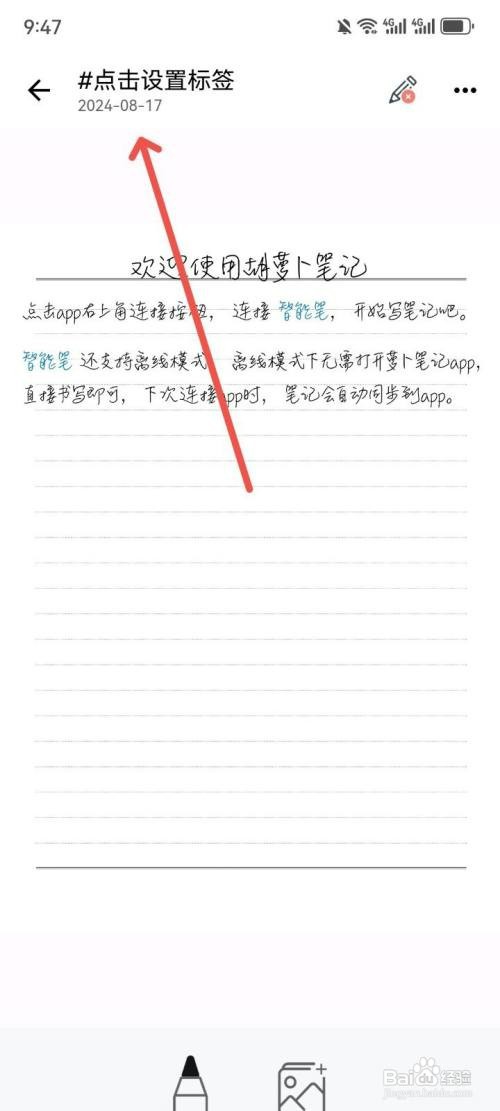 9:47
4G 4G
#点击设置标签
2024-08-17
欢迎使用胡萝卜笔记
点击app右上角连接按钮，连接 智能笔，开始写笔记吧。
智能笔 还支持离线模式 离线模式下无需打开萝卜笔记app，
直接书写即可，下次连接app时，笔记会自动同步到app。
Baidu经验
jingyan.baidu.com